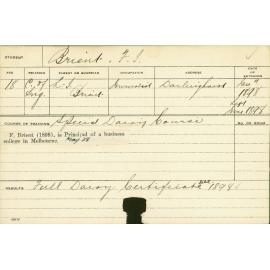 STUDENT Brient. F. J.
AGE RELIGION PARENT OR GUARDIAN OCCUPATION ADDRESS
18 C. of Eng. L. J. Brient Journalist Darlinghurst
1898
1898
COURSE OF TRAINING Special Dairy Course
F. Brient (1898), is Principal of a business
college in Melbourne. May 28
RESULTS Full Dairy Certificate 1898